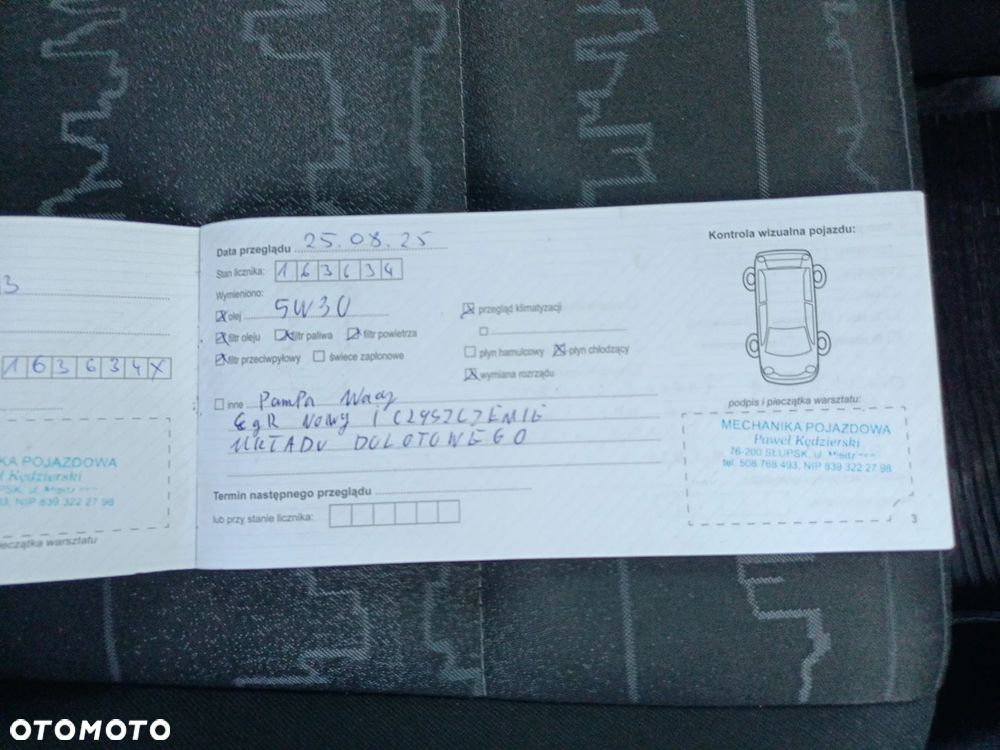 3
163634X
KA POJAZDOWA
ł Kędzierski
93, NIP 839 322 27 98
ieczątka warsztatu
Data przeglądu 25.08.25
Stan licznika: 163634
Wymieniono:
olej 5W30
filtr oleju filtr paliwa filtr powietrza
filtr przeciwpyłowy świece zapłonowe
przegląd klimatyzacji
płyn hamulcowy płyn chłodzący
wymiana rozrządu
inne PamPa Wody
EgR NOWY I CZYSZCZENIE
UKŁADU DOLOTOWEGO
Termin następnego przeglądu
lub przy stanie licznika:
Kontrola wizualna pojazdu:
podpis i pieczątka warsztatu:
MECHANIKA POJAZDOWA
Paweł Kędzierski
76-200 SŁUPSK, ul.
tel. 508 768 493, NIP 839 322 27 98
3
OTOMOTO